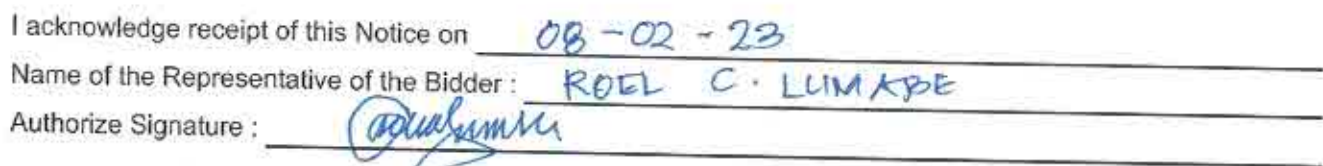 I acknowledge receipt of this Notice on 08-02-23
Name of the Representative of the Bidder : ROEL C. LUMABE
Authorize Signature :